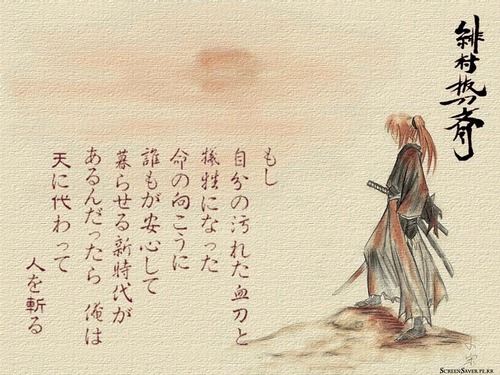 緋村抜刀斎
もし
自分の汚れた血刀と
犠牲になった
命の向こうに
誰もが安心して
暮らせる新時代が
あるんだったら 俺は
天に代わって
人を斬る
SCREENSAVER.PE.KR